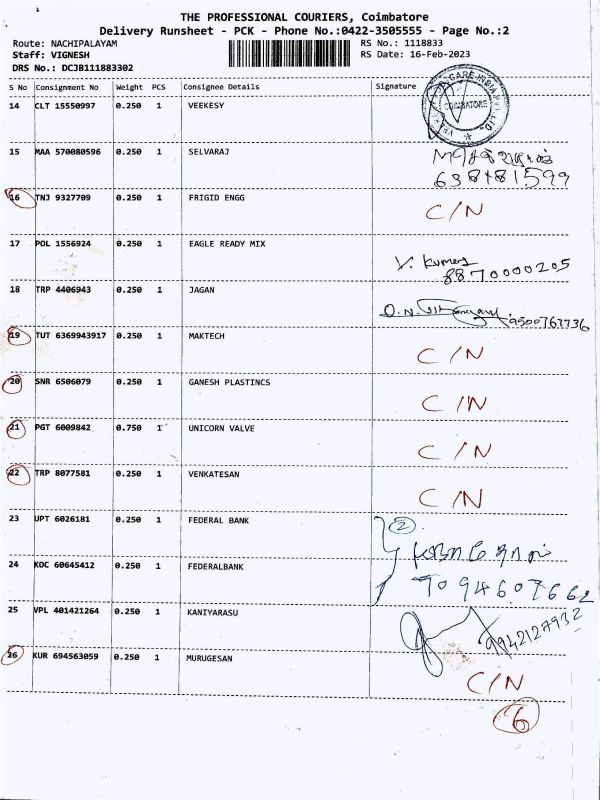 THE PROFESSIONAL COURIERS, Coimbatore
Delivery Runsheet - PCK - Phone No.:0422-3505555 - Page No.:2
Route: NACHIPALAYAM RS No.: 1118833
Staff: VIGNESH RS Date: 16-Feb-2023
DRS No.: DCJB111883302
S No Consignment No Weight PCS Consignee Details Signature
14 CLT 15550997 0.250 1 VEEKESY
COIMBATORE
15 MAA 570080596 0.250 1 SELVARAJ
638181599
16 TNJ 9327709 0.250 1 FRIGID ENGG C/N
17 POL 1556924 0.250 1 EAGLE READY MIX
V. Kumar
8870000205
18 TRP 4406943 0.250 1 JAGAN
9500763736
19 TUT 6369943917 0.250 1 MAKTECH C/N
20 SNR 6506079 0.250 1 GANESH PLASTINCS C/N
21 PGT 6009842 0.750 1 UNICORN VALVE C/N
22 TRP 8077581 0.250 1 VENKATESAN C/N
23 UPT 6026181 0.250 1 FEDERAL BANK 2
24 KOC 60645412 0.250 1 FEDERALBANK
9094607662
25 VPL 401421264 0.250 1 KANIYARASU 9942127932
26 KUR 694563059 0.250 1 MURUGESAN C/N
6